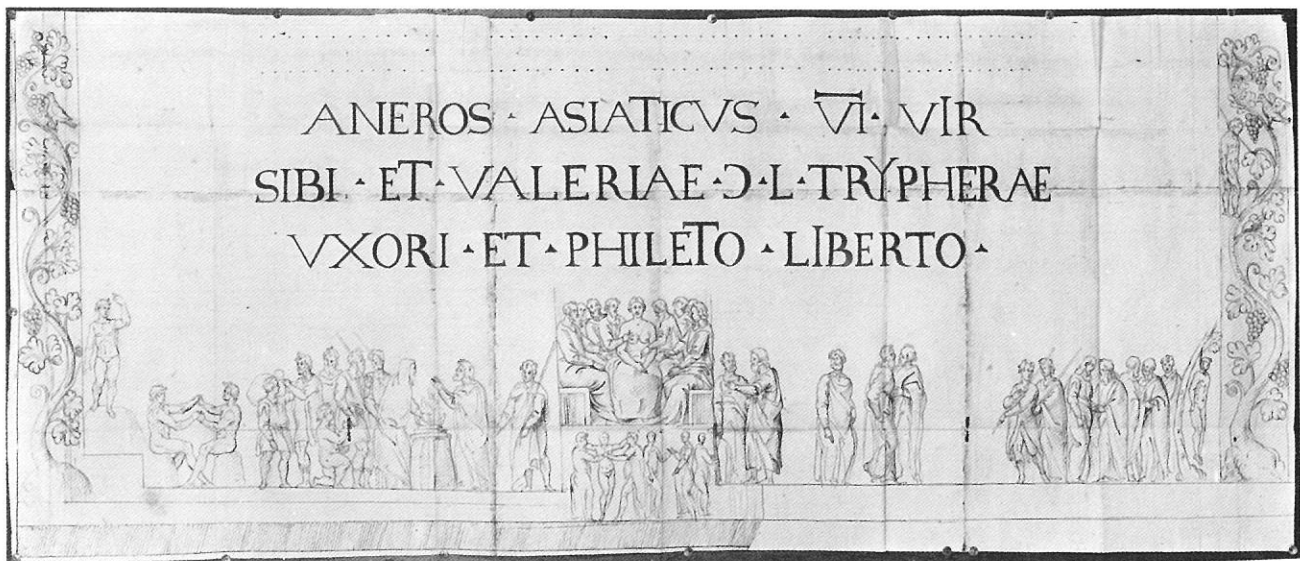 ANEROS · ASIATICVS · V̅I̅ · VIR
SIBI · ET · VALERIAE · Ɔ · L · TRYPHERAE
VXORI · ET · PHILETO · LIBERTO ·